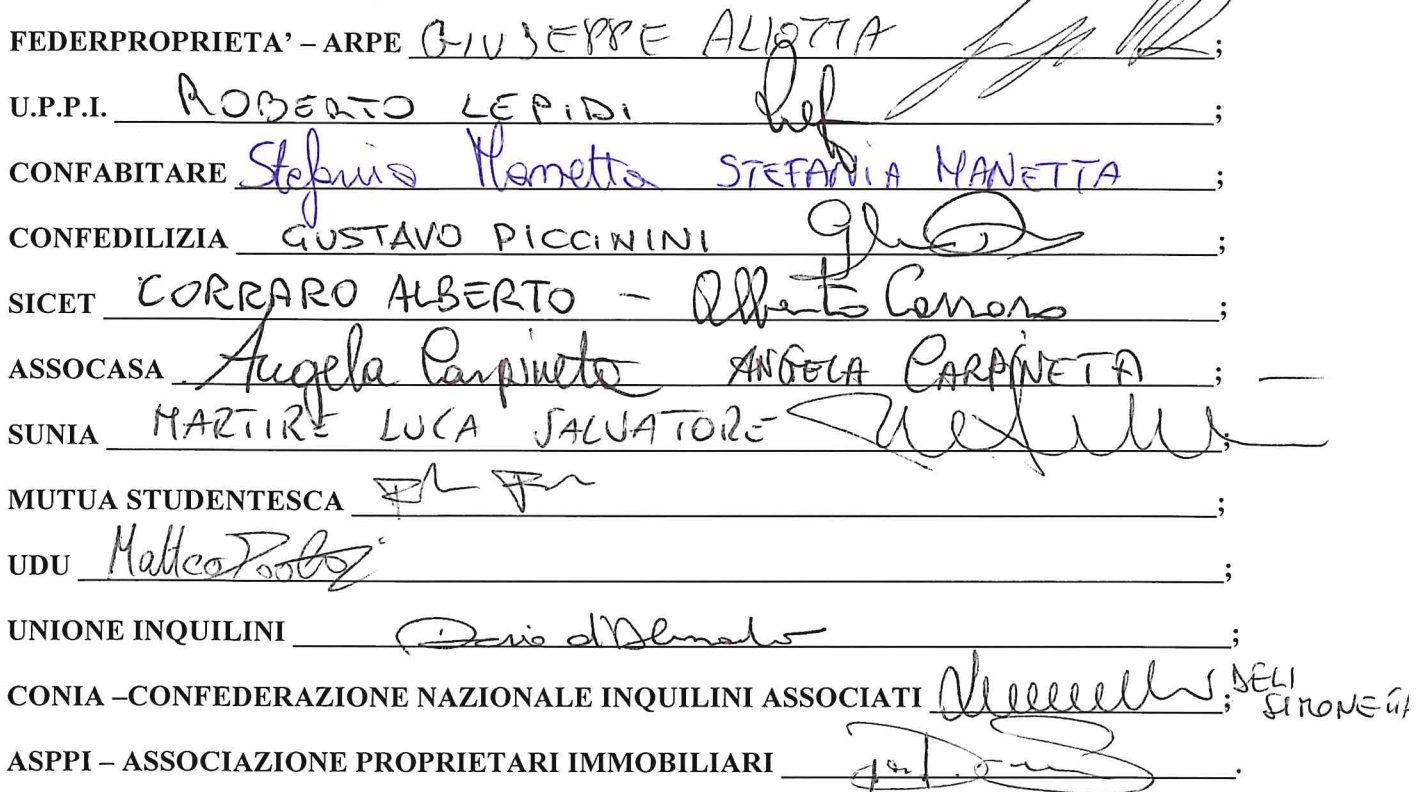 FEDERPROPRIETA' – ARPE GIUSEPPE ALIOTTA ;
U.P.P.I. ROBERTO LEPIDI ;
CONFABITARE Stefania Manetta STEFANIA MANETTA ;
CONFEDILIZIA GUSTAVO PICCININI ;
SICET CORRARO ALBERTO – Alberto Corraro ;
ASSOCASA Angela Carpineta ANGELA CARPINETA ;
SUNIA MARTIRE LUCA SALVATORE ;
MUTUA STUDENTESCA ;
UDU Matteo ;
UNIONE INQUILINI ;
CONIA –CONFEDERAZIONE NAZIONALE INQUILINI ASSOCIATI ; DELI
SIMONETTA
ASPPI – ASSOCIAZIONE PROPRIETARI IMMOBILIARI .